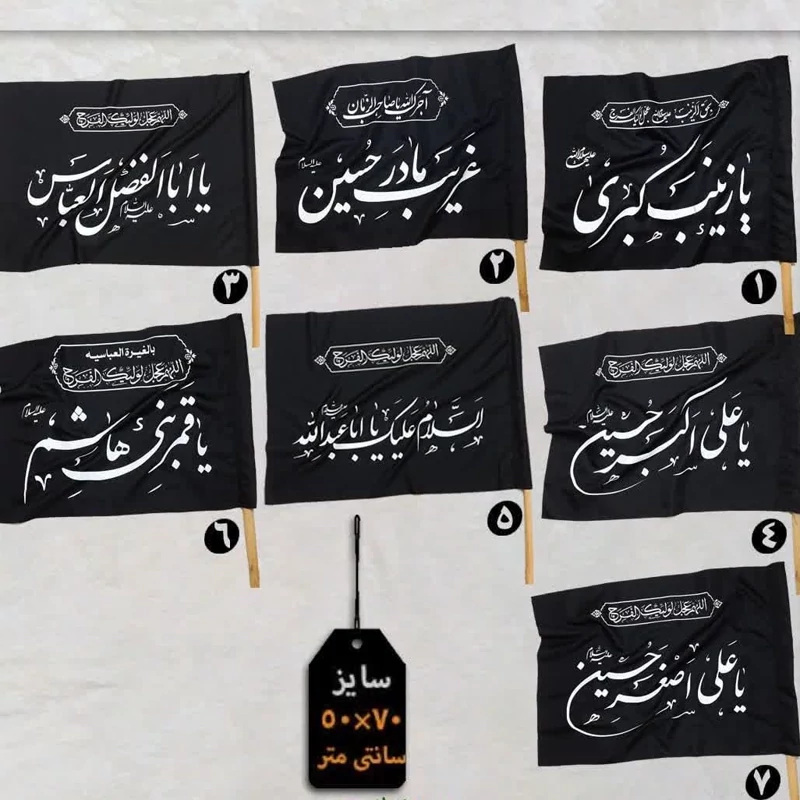 یا زینب کبری
سلام الله علیها
۱
آجرک الله یا صاحب الزمان
غریب مادر حسین
علیه السلام
۲
اللهم عجل لولیک الفرج
یا اباالفضل العباس
علیه السلام
۳
اللهم عجل لولیک الفرج
یا علی اکبر حسین
علیه السلام
٤
اللهم عجل لولیک الفرج
السلام علیک یا اباعبدالله
۵
بالغیرة العباسیه
اللهم عجل لولیک الفرج
یا قمر بنی هاشم
علیه السلام
٦
اللهم عجل لولیک الفرج
یا علی اصغر حسین
علیه السلام
۷
سایز
۵۰×۷۰
سانتی متر